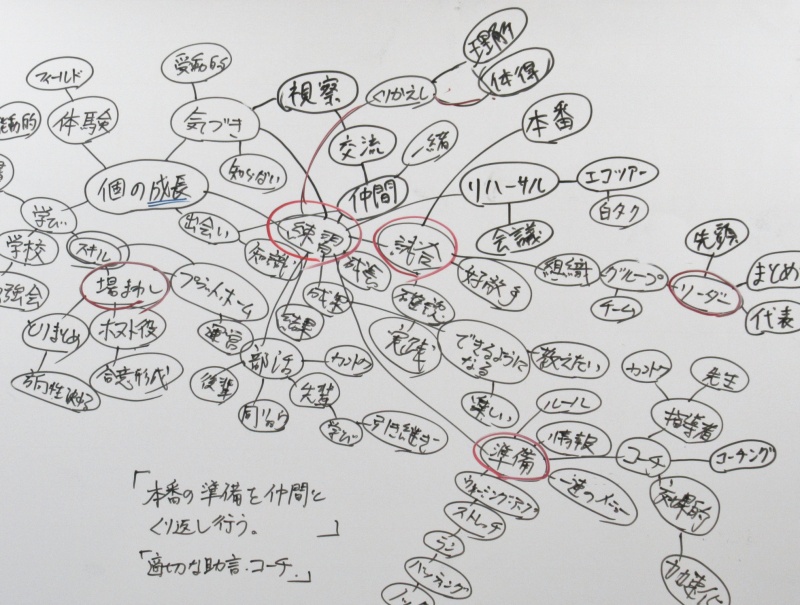 フィールド
受動的
視察
くりかえし
理解
体得
体験
気づき
本番
交流
一緒
知らない
仲間
リハーサル
エコツアー
白タク
個の成長
出会い
練習
試合
会議
学び
学校
スキル
知識
成長
組織
グループ
チーム
先頭
リーダー
まとめ
代表
場まわし
プラットホーム
成果
好敵手
結果
実践
できるように
なる
教えたい
楽しい
とりまとめ
ホスト役
運営
部活
後輩
先輩
学び
引き継ぎ
合意形成
準備
ルール
情報
コーチ
指導者
先生
コーチング
効果的
加速化
ウォーミングアップ
ストレッチ
ラン
バッティング
ノック
「本番の準備を仲間と
くり返し行う。」
「適切な助言.コーチ.」